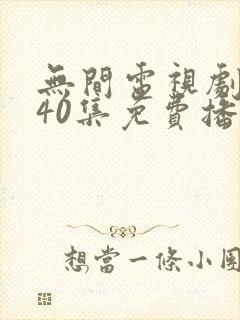 無間電視劇
40集免費播
想當一條小團